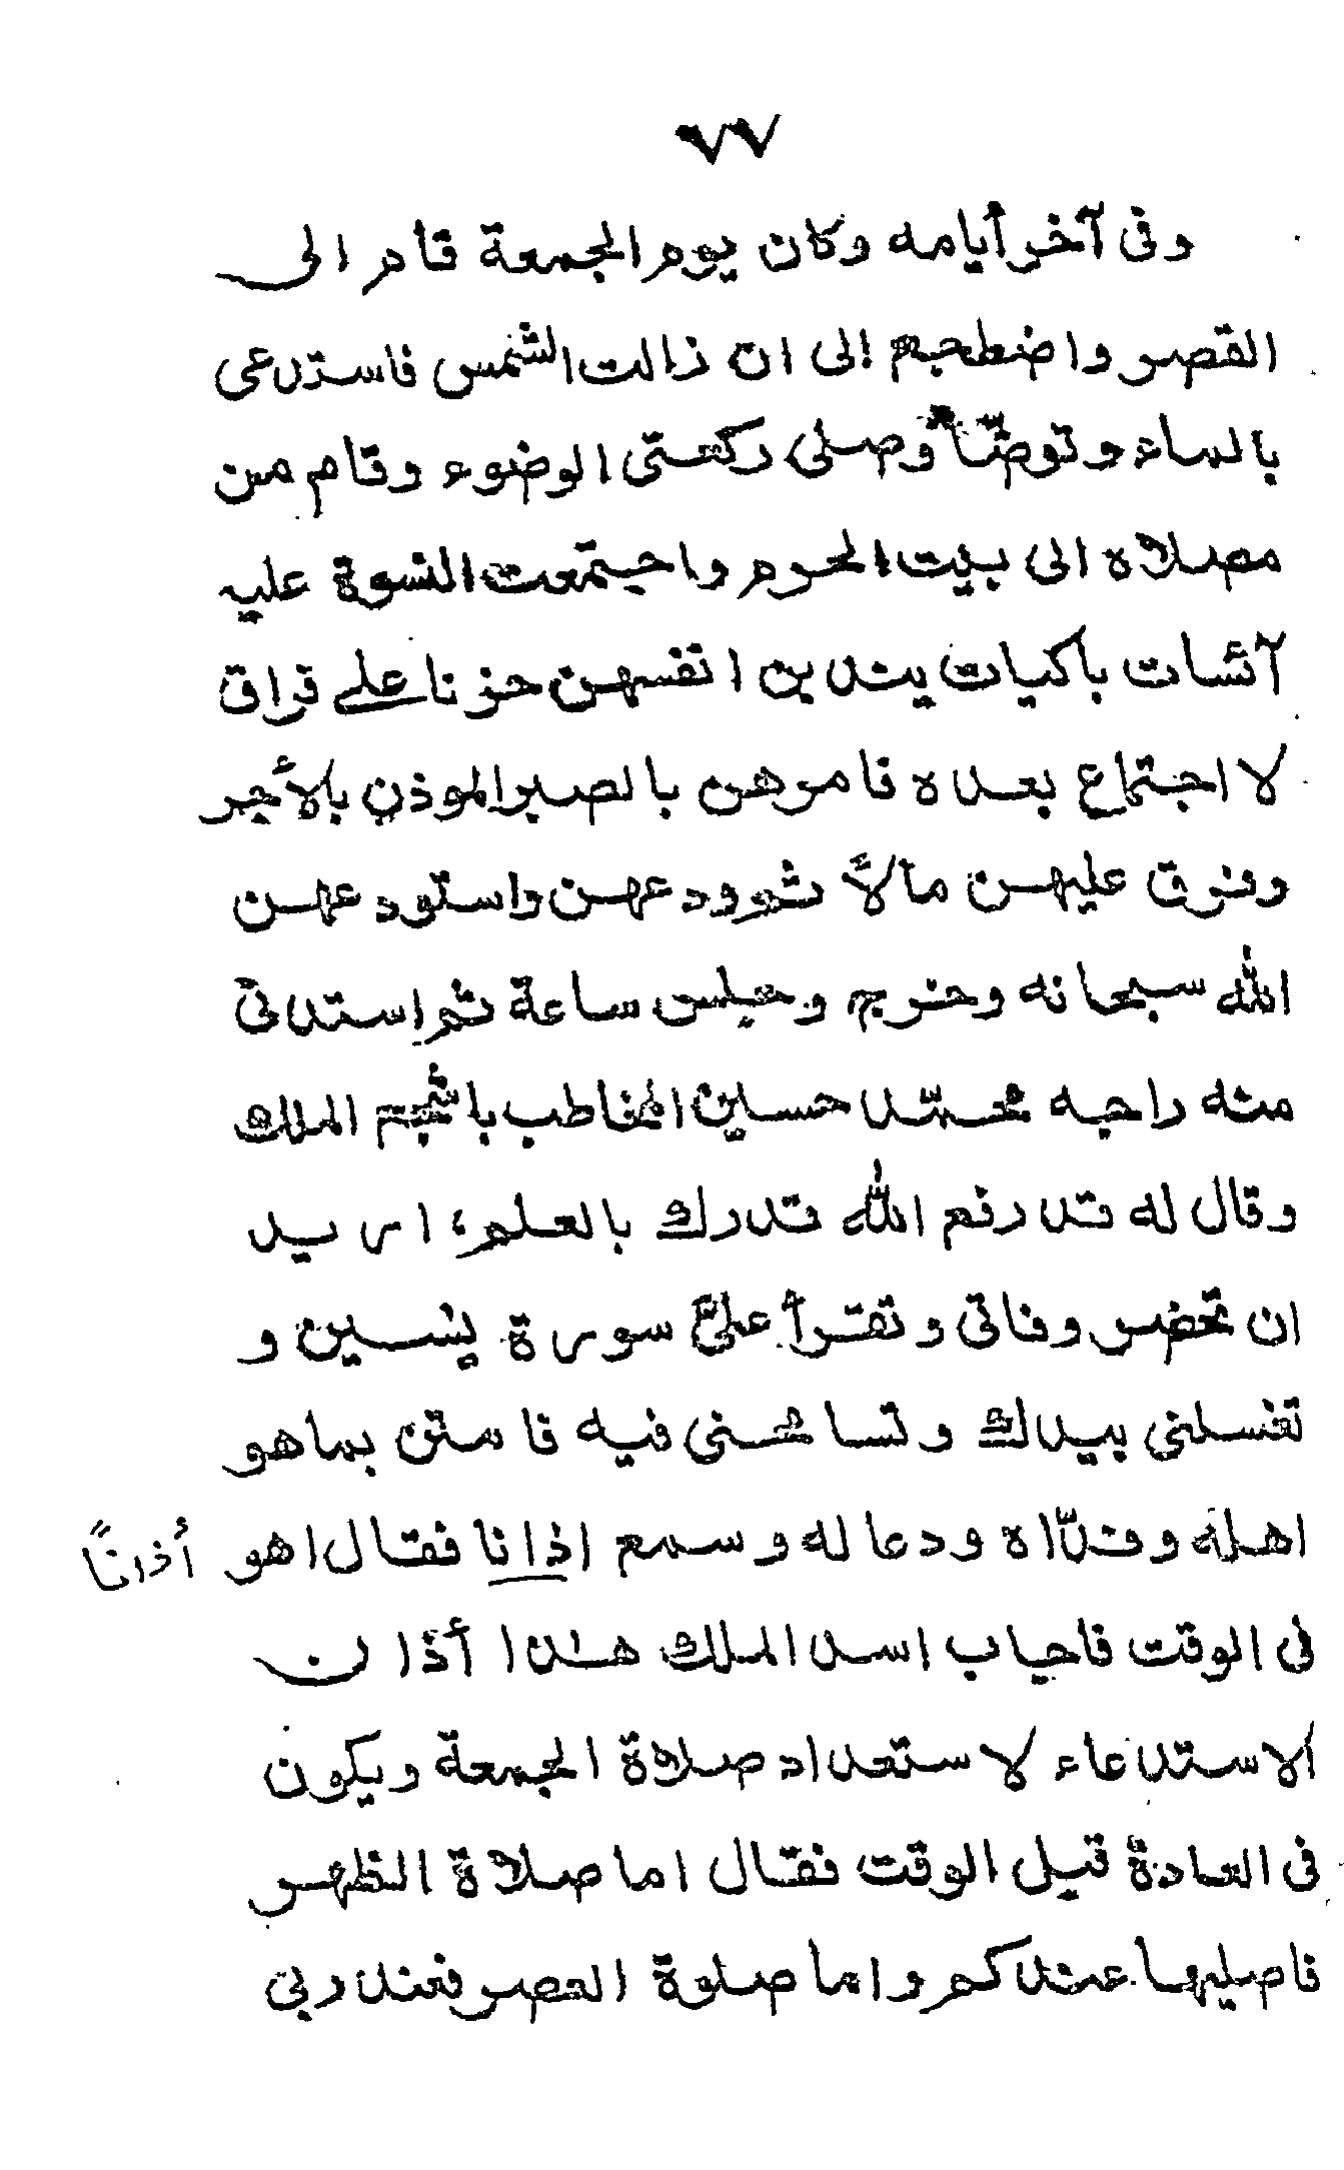 ٧٧
وفى آخر أيامه وكان يوم الجمعة قام الى
القصر واضطجع إلى ان زالت الشمس فاستدعى
بالماء وتوضّأ وصلى ركعتى الوضوء وقام من
مصلاه الى بيت الحرم واجتمعت النسوة عليه
آئسات باكيات يندبن انفسهن حزنا على فراق
لا اجتماع بعده فامرهن بالصبر الموذن بالأجر
وفرق عليهن مالاً ثم ودعهن واستودعهن
الله سبحانه وخرج وجلس ساعة ثم استدنى
منه راجه محمّد حسين المخاطب باشجع الملك
وقال له قد رفع الله قدرك بالعلم، اريد
ان تحضر وفاتى وتقرأ علىّ سورة يٰسين و
تغسلنى بيدك وتسامحنى فيه فامتن بما هو
اهله وفدّاه ودعا له وسمع اذانا فقال اهو
أذاناً
فى الوقت فاجاب اسد الملك هذا أذان
الاستدعاء لاستعداد صلاة الجمعة ويكون
فى العادة قبل الوقت فقال اما صلاة الظهر
فاصليها عندكم واما صلوة العصر فعند ربى